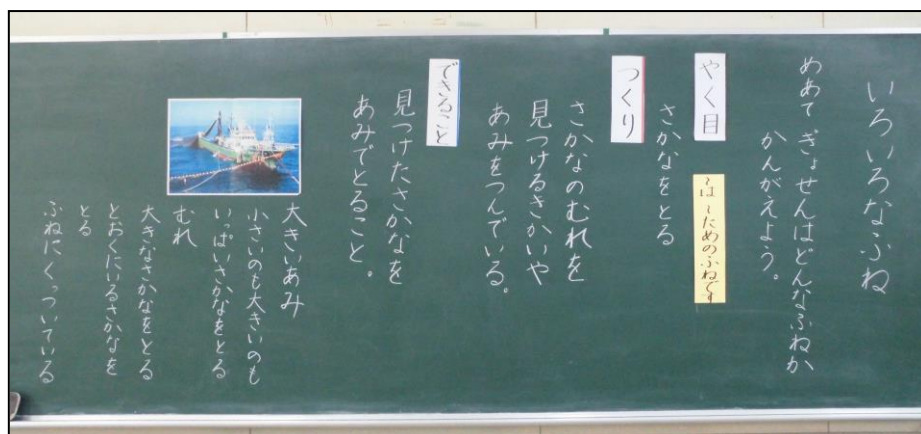 いろいろなふね
めあて ぎょせんはどんなふねか
かんがえよう。
やく目
～は～ためのふねです
さかなをとる
つくり
さかなのむれを
見つけるきかいや
あみをつんでいる。
できること
見つけたさかなを
あみでとること。
大きいあみ
小さいのも大きいのも
いっぱいさかなをとる
むれ
大きなさかなをとる
とおくにいるさかなを
とる
ふねにくっついている